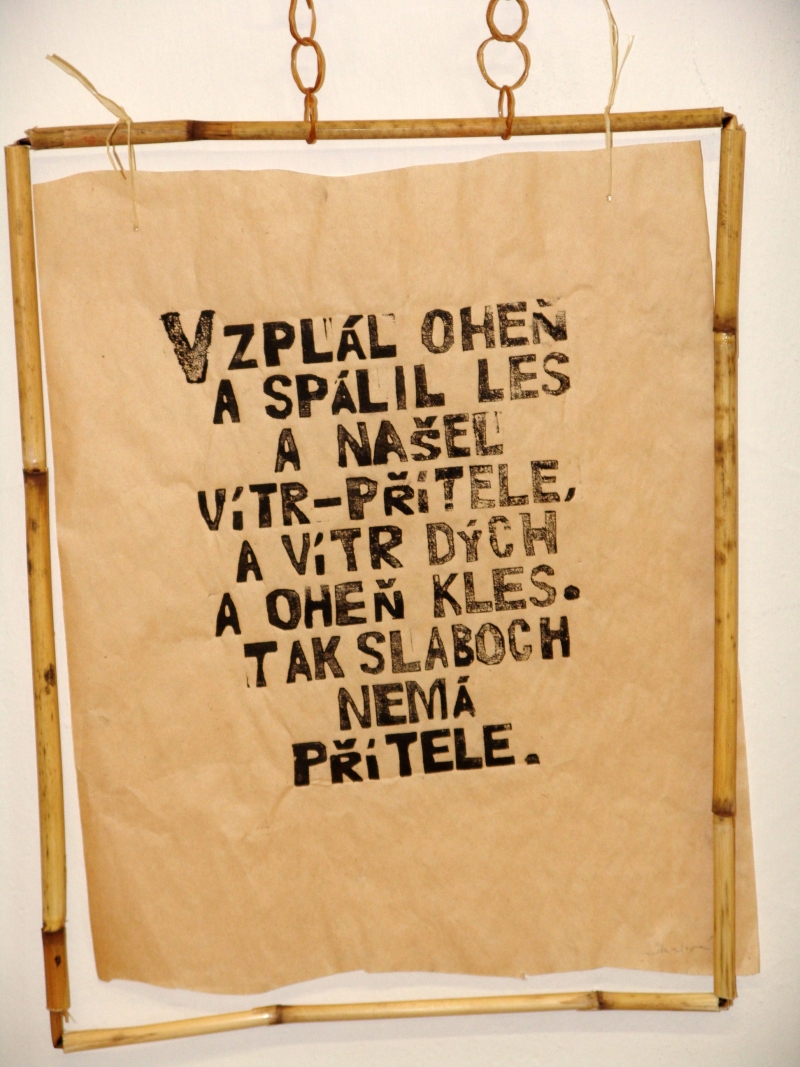 VZPLÁL OHEŇ
A SPÁLIL LES
A NAŠEL
VÍTR-PŘÍTELE,
A VÍTR DÝCH
A OHEŇ KLES.
TAK SLABOCH
NEMÁ
PŘÍTELE.